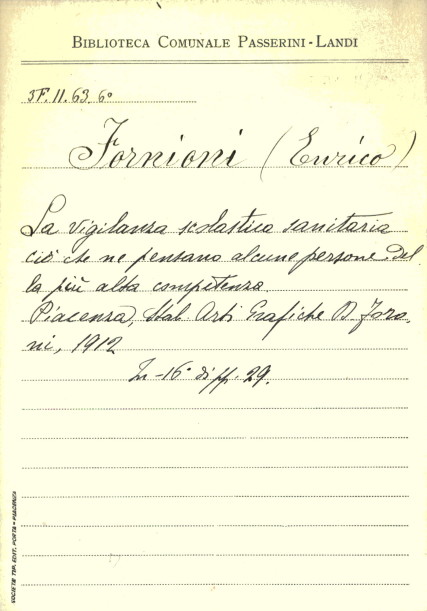 BIBLIOTECA COMUNALE PASSERINI-LANDI
JF. II. 63. 6º
Fornioni (Enrico)
La vigilanza scolastica sanitaria
ciò che ne pensano alcune persone del
la più alta competenza.
Piacenza, Stal. Arti Grafiche D. Foro
ni, 1912
In-16º di pp. 29.
SOCIETÀ TIP. EDIT. PORTA-PIACENZA